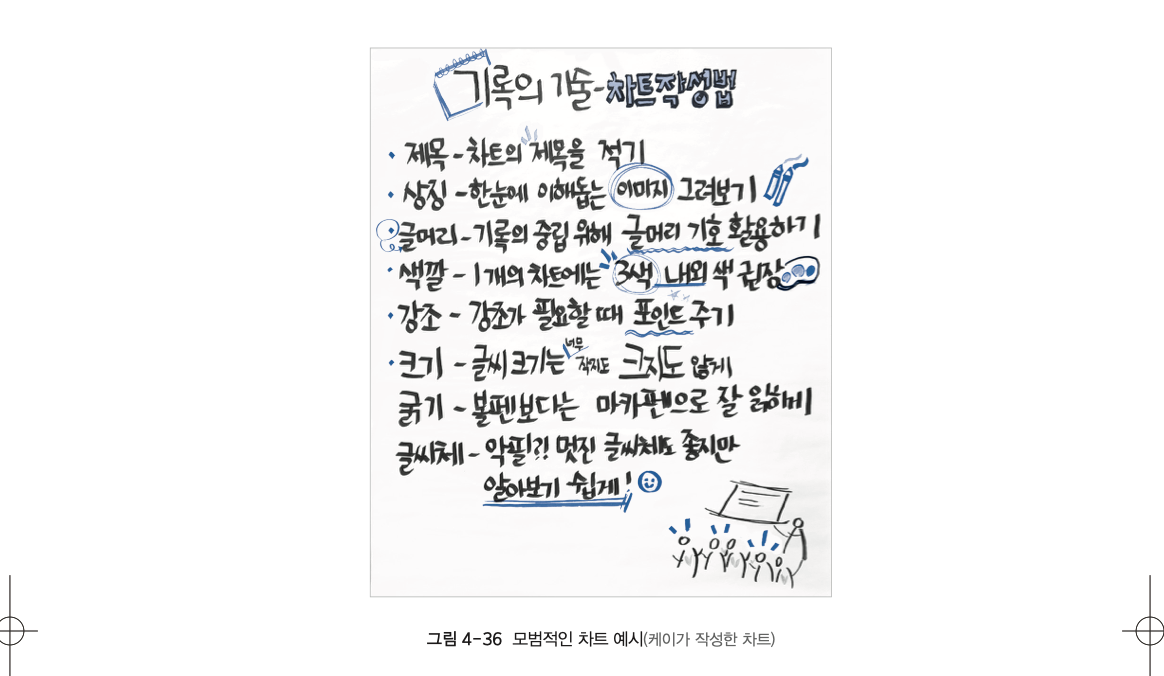 기록의 기술-차트작성법
제목 - 차트의 제목을 적기
상징 - 한눈에 이해돕는 이미지 그려보기
글머리 - 기록의 중립 위해 글머리 기호 활용하기
색깔 - 1개의 차트에는 3색 내외 색 권장
강조 - 강조가 필요할 때 포인트 주기
크기 - 글씨 크기는 너무 작지도 크지도 않게
굵기 - 볼펜보다는 마카펜으로 잘 읽히게
글씨체 - 악필?! 멋진 글씨체도 좋지만
알아보기 쉽게!
그림 4-36 모범적인 차트 예시(케이가 작성한 차트)